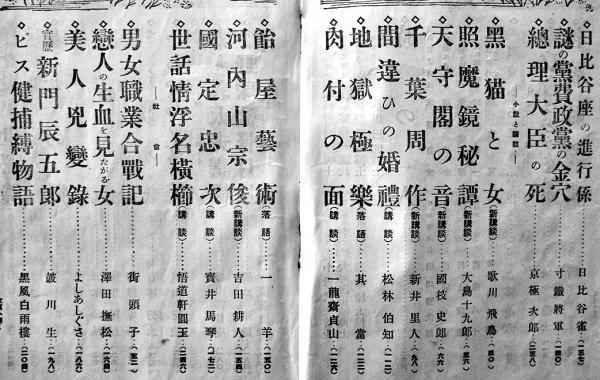 ◇日比谷座の進行係……日比谷雀…(一三七)
◇謎の黨費政黨の金穴……寸鐵將軍…(一四〇)
◇總理大臣の死……京極次郎…(二三八)
―小說と講談―
◇黑猫と女(新講談)…歌川飛鳥…(四〇)
◇照魔鏡秘譚(新講談)…大島十九郎…(五六)
◇天守閣の音(新講談)…國枝史郎…(六六)
◇千葉周作(新講談)…新井里人…(九八)
◇間違ひの婚禮(講談)…松林伯知…(一二〇)
◇地獄極樂(落語)…其當…(二三)
◇肉付の面(講談)…一龍齋貞山…(二二六)
◇飴屋藝術(落語)…一羊…(一五〇)
◇河內山宗俊(新講談)…吉田耕人…(一五四)
◇國定忠次(講談)…寳井馬琴…(一七二)
◇世話情浮名橫櫛(講談)…悟道軒圓玉…(二四六)
―社會―
◇男女職業合戰記……街頭子…(五二)
◇戀人の生血を見たがる女……澤田撫松…(一六四)
◇美人兇變錄……よしあしぐさ…(一八六)
◇實歷新門辰五郎……波川生…(一九八)
◇ピス健捕縛物語……黑風白雨樓…(二〇四)